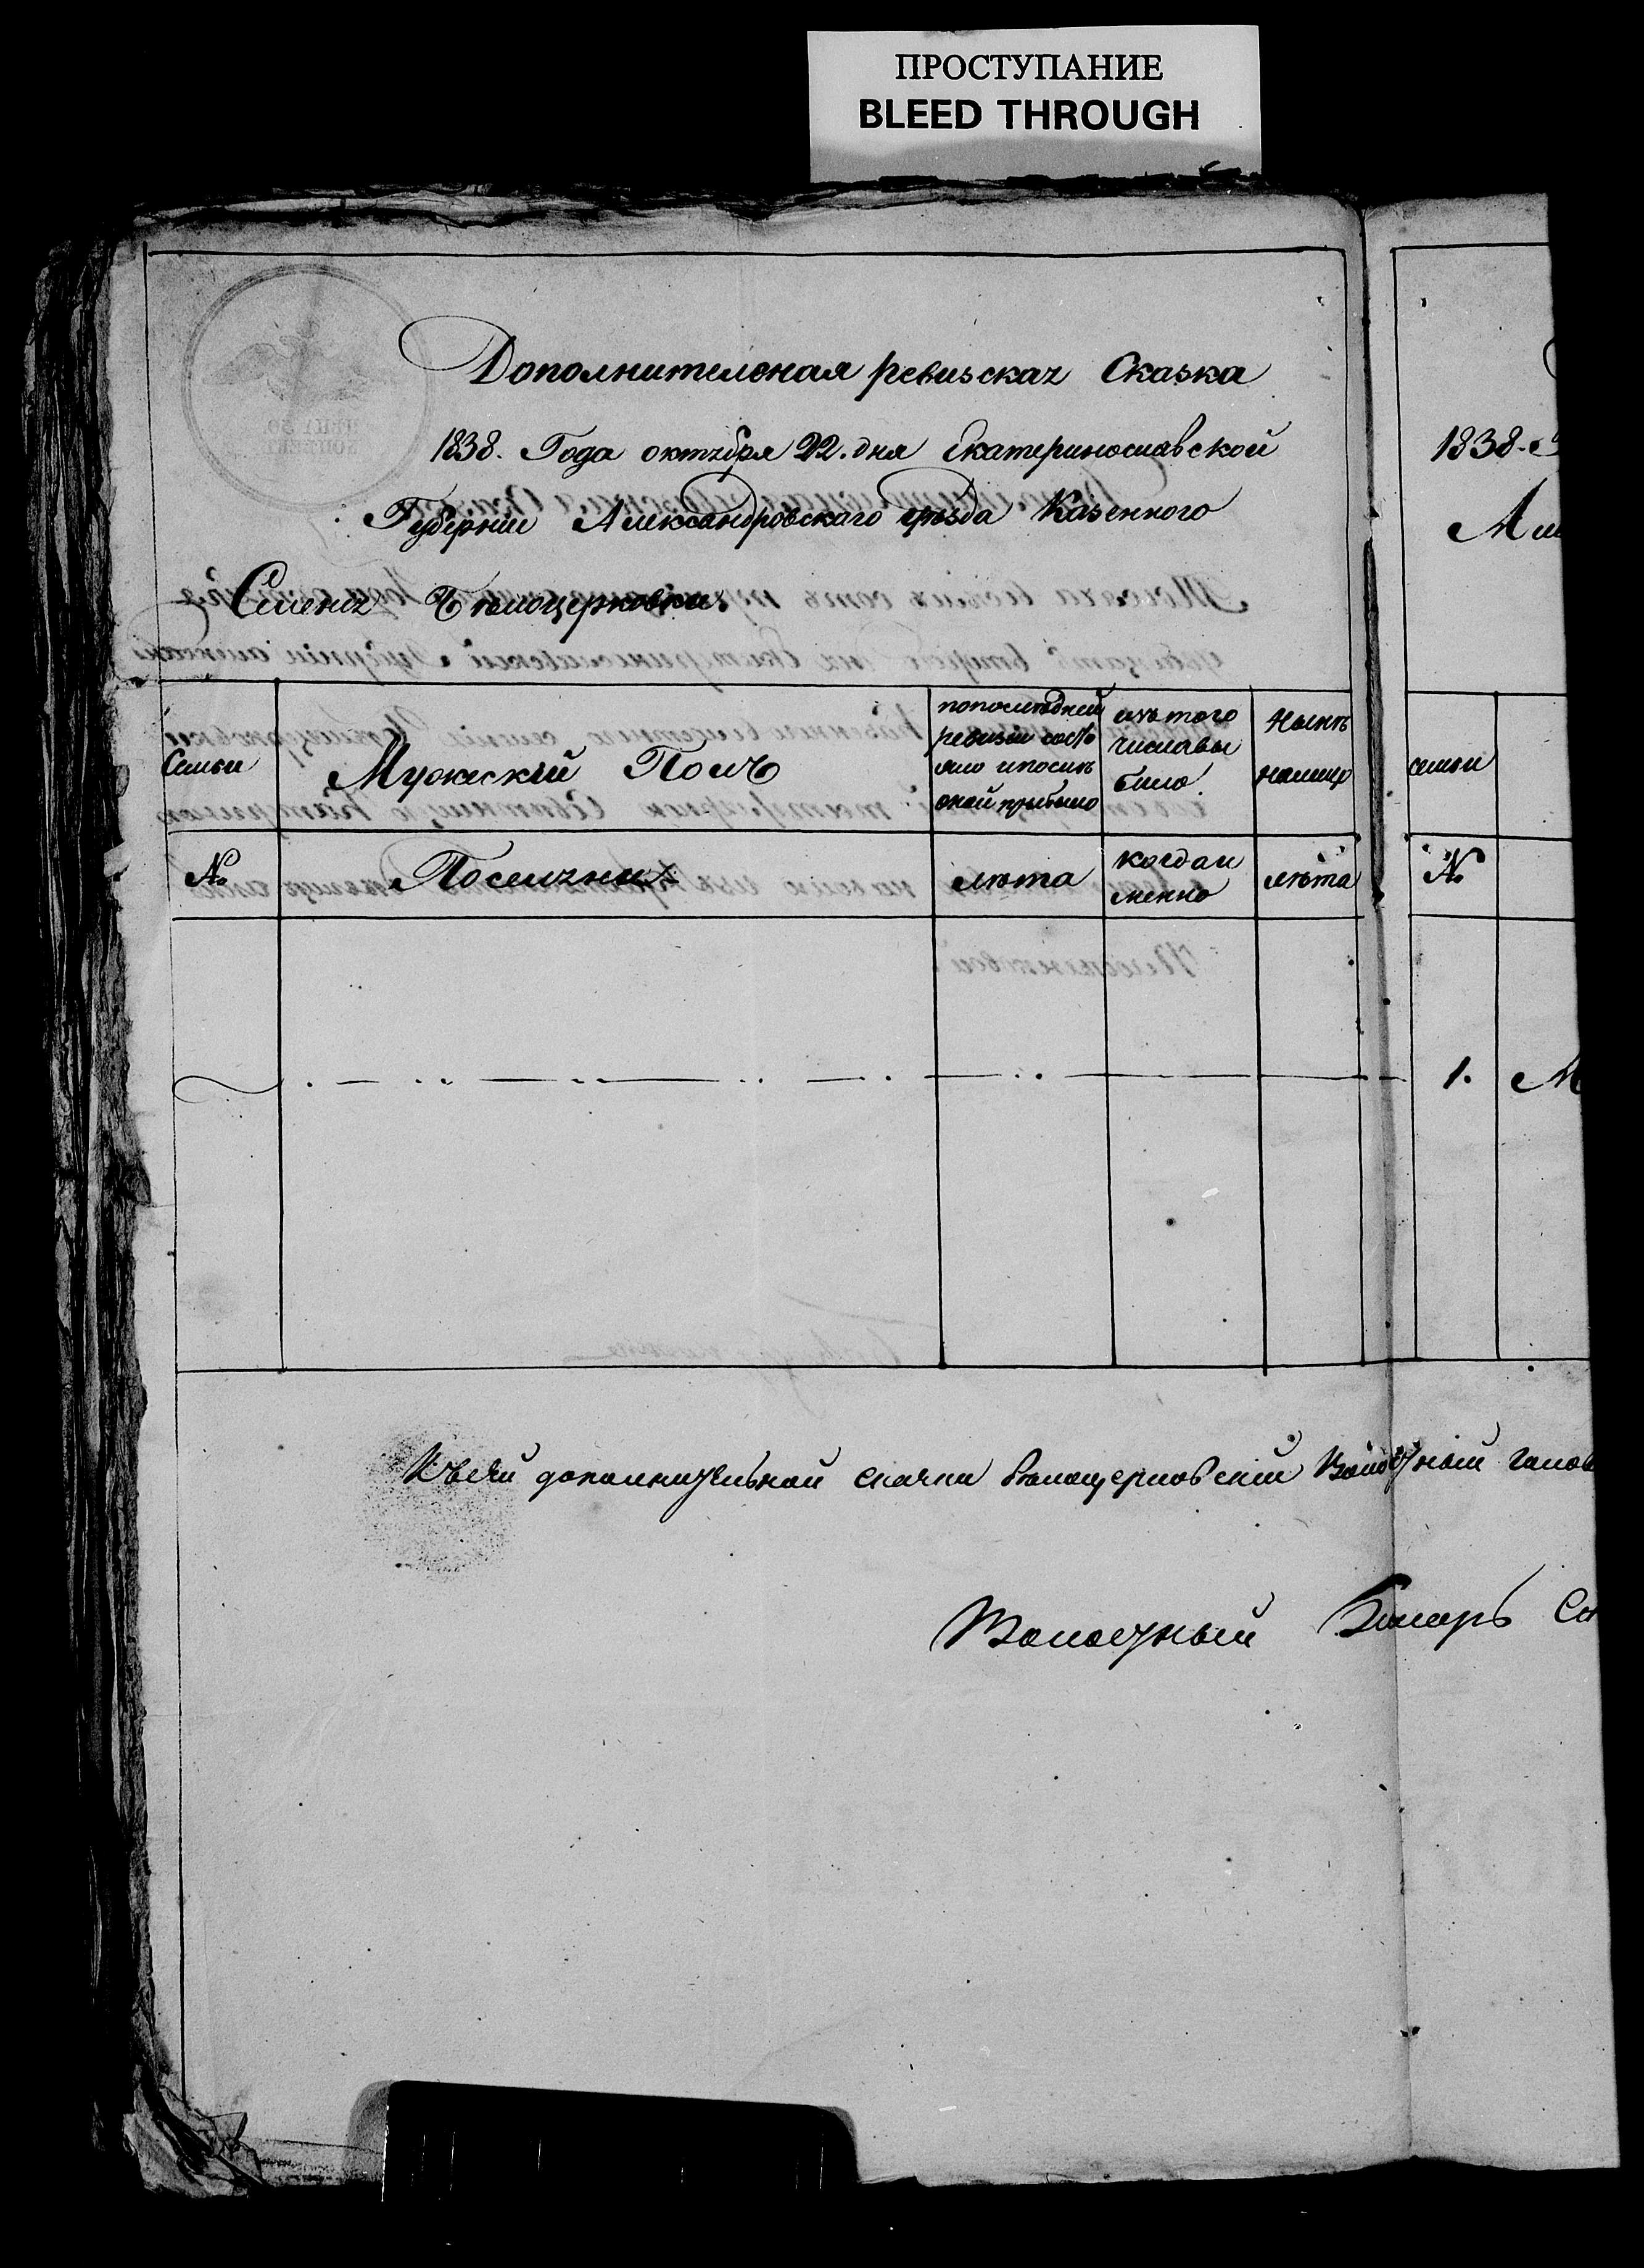 ПРОСТУПАНИЕ
BLEED THROUGH
Дополнителная ревизская Сказка
1838. Года октября 22. дня Екатеринославской
Губернии Александровскаго уѣзда Казенного
Селения Бѣлоцерковки.
Семьи
Мужескій Полъ
по последней
ревизіи состо
яло и послѣ
оной прибыло
изъ того
числа вы
было
Нынѣ
налицо
№
Поселяни
лѣта
когда и
менно
лѣта
Къ сей дополнительной скаски Белоцерковскій Волостный голов
Волостный Писарь
1838.
семьи
№
1. М